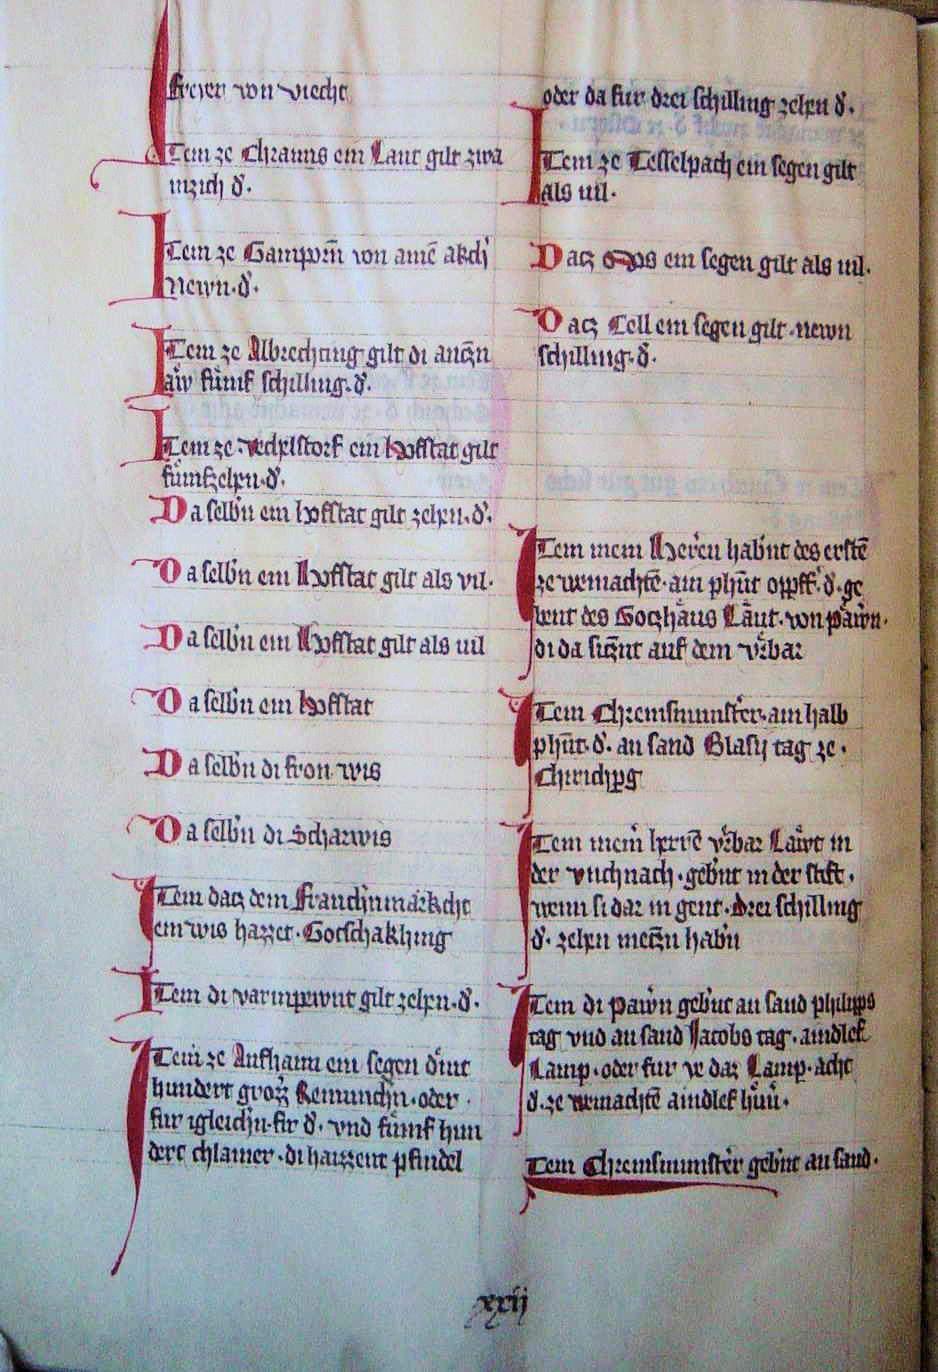 freyen von viecht
Item ze Chrauns ein Laut gilt zwa
inzich ₰.
Item ze Gamporn̄ von amē akch
Newn · ₰.
Item ze Albrechting gilt di anczn
aw fumf schilling · ₰.
Item ze Vechelstorf ein hofstat gilt
fumfzehen · ₰.
Da selbn ein hofstat gilt zehen · ₰.
Da selbn ein hofstat gilt als vil ·
Da selbn ein hofstat gilt als uil
Da selbn ein hofstat
Da selbn di fron wis
Da selbn di Scharwis
Item dacz dem Franchnmarkcht
ein wis haizzet · Gotschakhing
Item di varinpewnt gilt zehen · ₰.
Item ze Aufham ein segen dint
hundert grozz Remunchn · oder ·
fur igleichn · fir ₰ · vnd fumf hun
dert chlainer · di haizzent pfrndel
oder da fur drei schilling zehen ₰ ·
Item ze Tesselpach ein segen gilt
als uil ·
Dacz ein segen gilt als uil ·
Dacz Cell ein segen gilt · newn
schilling · ₰.
Item mein heren habnt des erstē
ze wemachtē · ain phūt ₰ · ge
bent des Goczhaus Laut · von pawrn ·
di da siczent auf dem vrbar
Item Chremsmunster · ain halb
phūt · ₰ · an sand Blasij tag ze ·
Chirichpg
Item mein herrē vrbar Lawt in
der vuchnach · gebnt in der stift ·
wenn si dar in gent · drei schilling
₰ · zehen meczn habn
Item di pawrn gebnt an sand philipps
tag vnd an sand Jacobs tag · aindlef
Lamp · oder fur ie daz Lamp · acht
₰ · ze wemachtē aindlef hun ·
Item Chremsmunster gebnt an sand ·
xxij